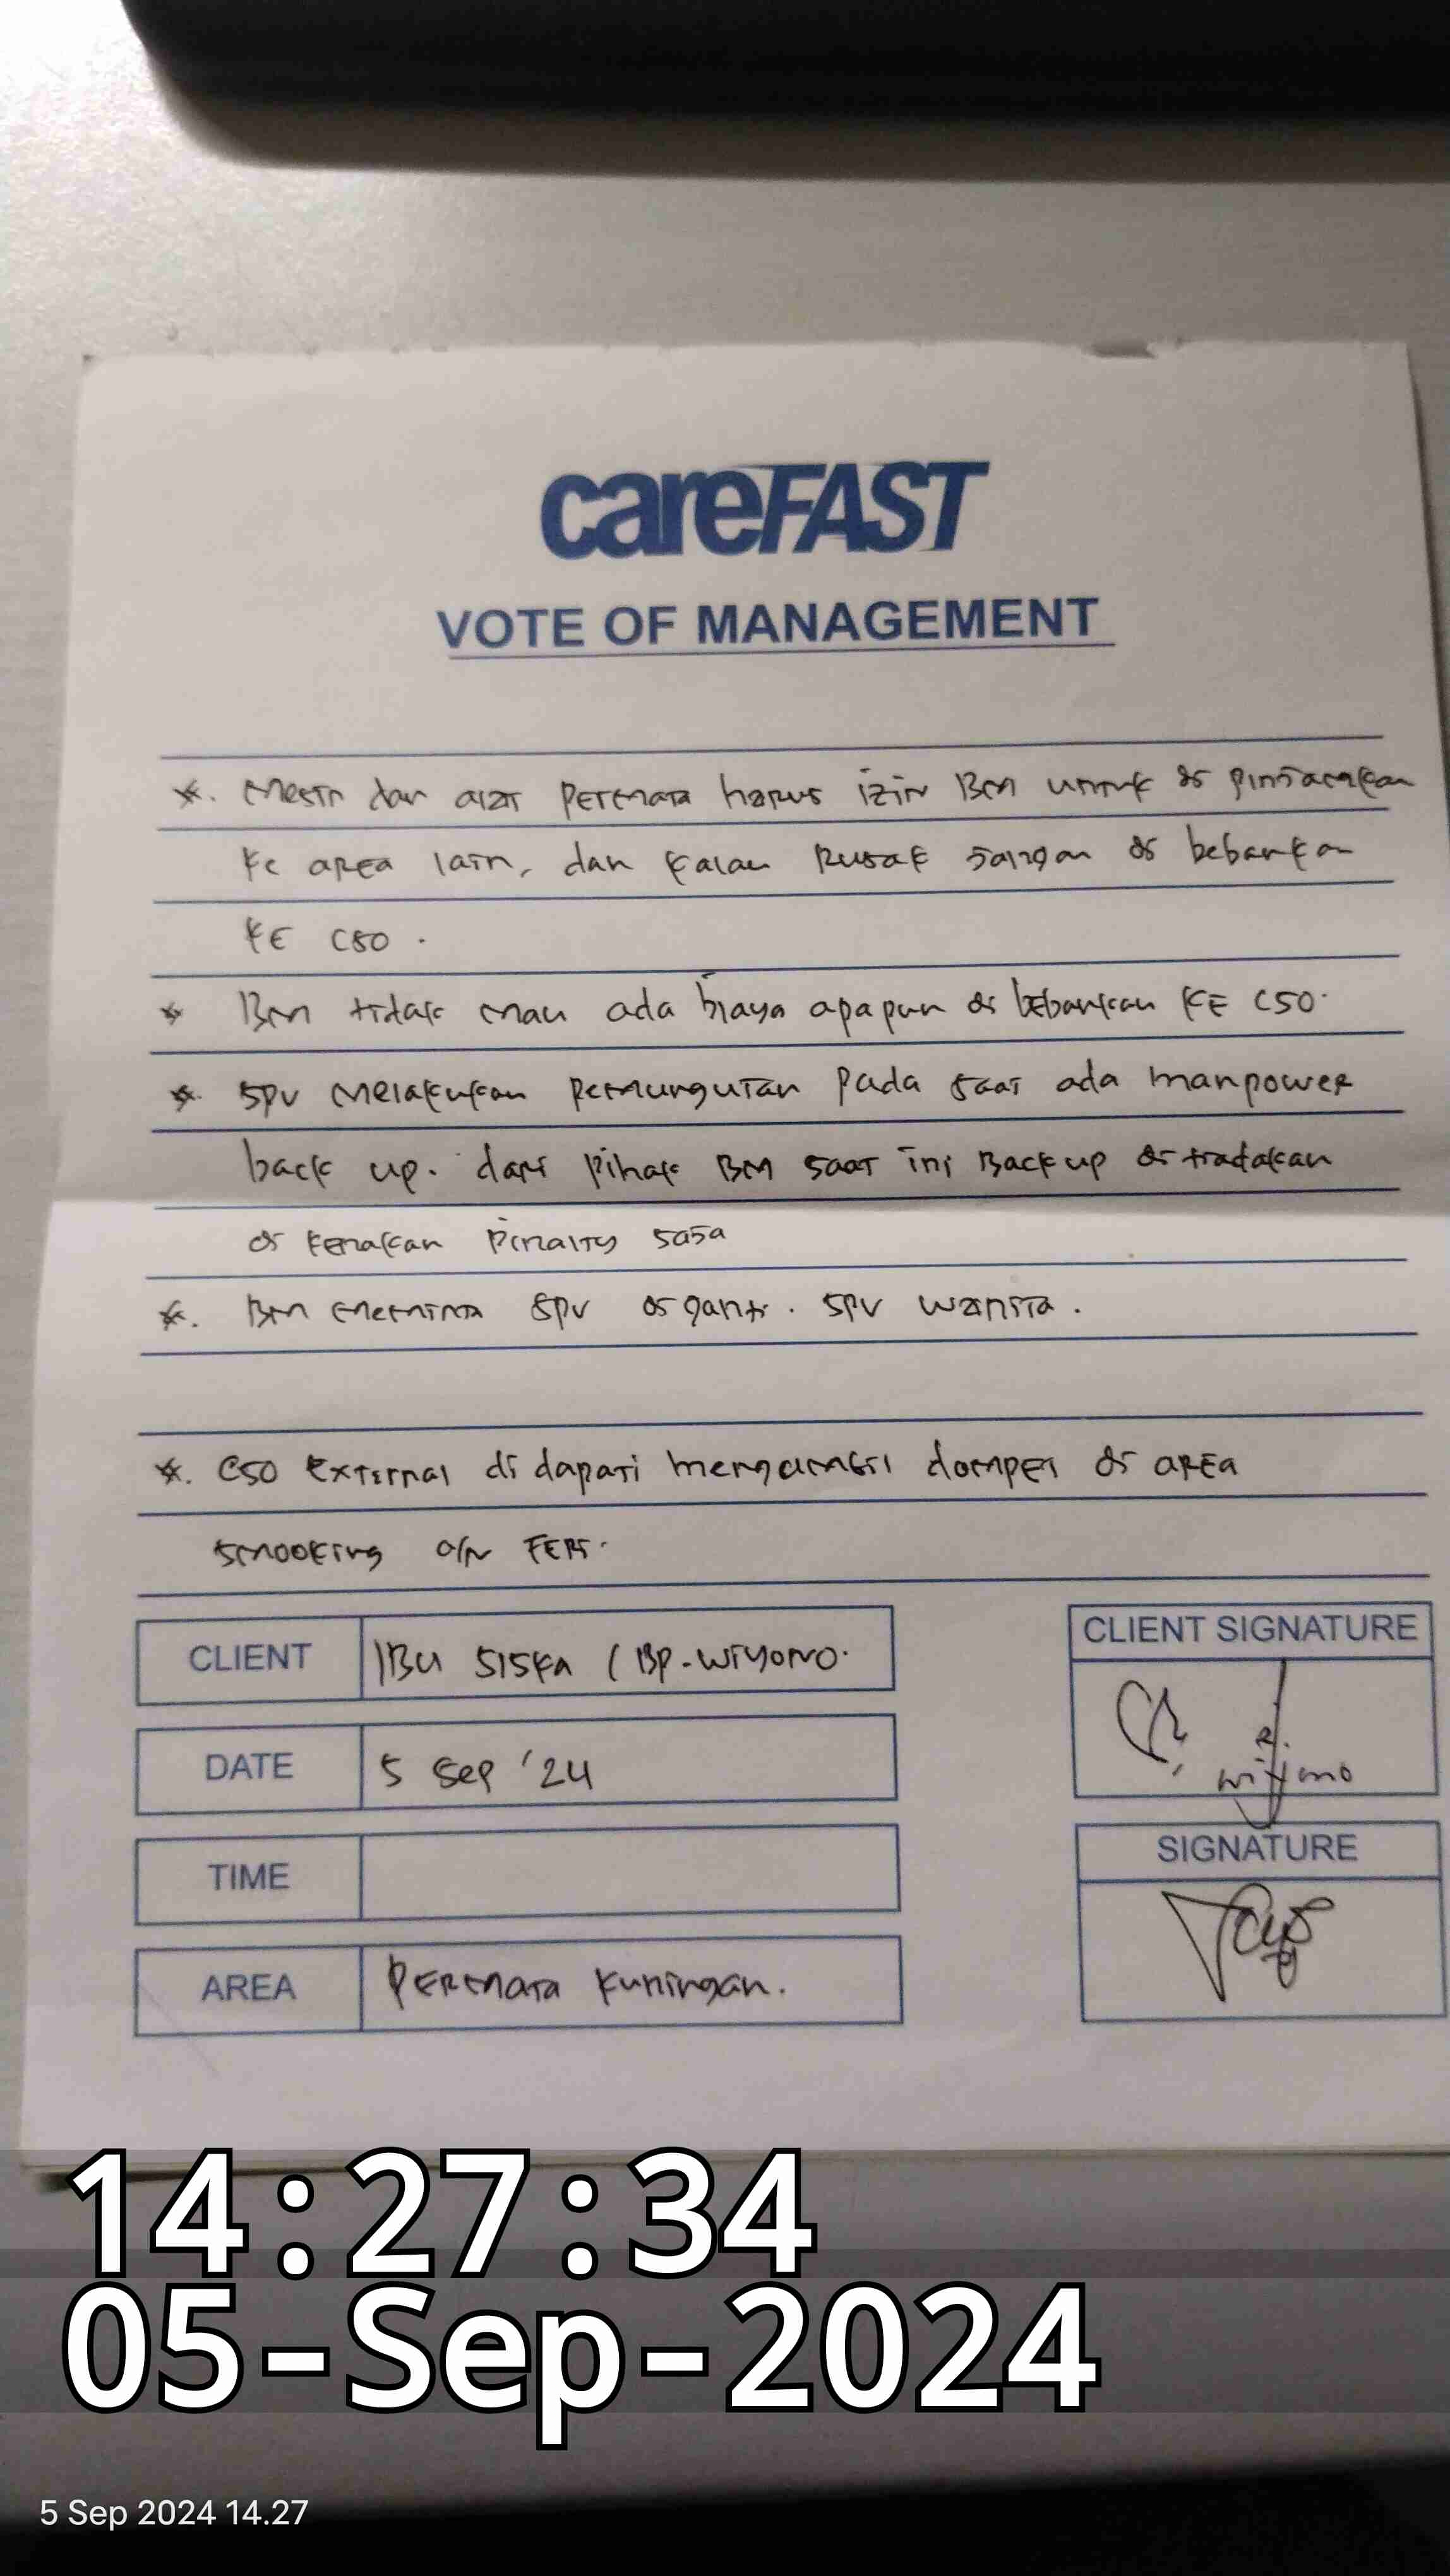 careFAST
VOTE OF MANAGEMENT
*. Mesin dan alat Permata harus izin BM untuk di pinjamkan
ke area lain, dan kalau Rusak jangan di bebankan
KE CSO.
* BM tidak mau ada biaya apapun di bebankan KE CSO.
* SPV Melakukan Pemungutan Pada saat ada manpower
back up. dari Pihak BM saat ini Backup di tiadakan
di kenakan Pinalty saja
*. BM meminta SPV di ganti. SPV wanita.
*. CSO External di dapati mengambil dompet di area
smooking a/n FERI.
CLIENT IBU SISKA (BP. WIYONO.
CLIENT SIGNATURE
wiyono
DATE 5 Sep '24
TIME
SIGNATURE
AREA PERMATA KUNINGAN.
14:27:34
05-Sep-2024
5 Sep 2024 14.27